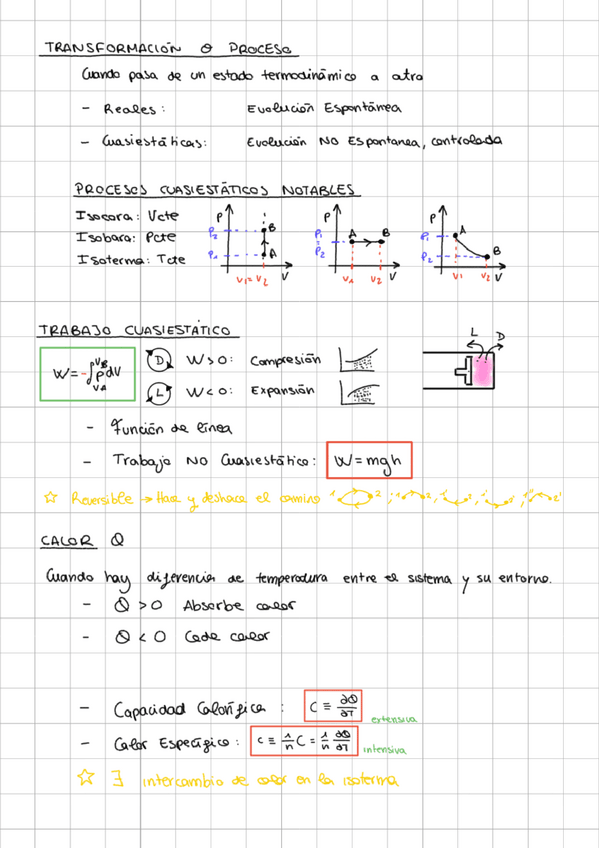 TRANSFORMACIÓN O PROCESO
Cuando pasa de un estado termodinámico a otro
- Reales: Evolución Espontánea
- Cuasiestáticas: Evolución NO Espontanea, controlada
PROCESOS CUASIESTÁTICOS NOTABLES
Isocora: Vcte
Isobara: Pcte
Isoterma: Tcte
P P₂ P₁ B A V₁=V₂ V
P P₁ = P₂ A B V₁ V₂ V
P P₁ P₂ A B V₁ V₂ V
TRABAJO CUASIESTÁTICO
W=-∫_{VA}^{VB} P dV
D W>0: Compresión
L W<0: Expansión
L D
- Función de línea
- Trabajo NO Cuasiestático: W=mgh
☆ Reversible → Hace y deshace el camino
CALOR Q
Cuando hay diferencia de temperatura entre el sistema y su entorno.
- Q>0 Absorbe calor
- Q<0 Cede calor
- Capacidad Calorífica: C ≡ ∂Q/∂T extensiva
- Calor Específico: c ≡ 1/n C = 1/n ∂Q/∂T intensiva
☆ ∃ intercambio de calor en la isoterma